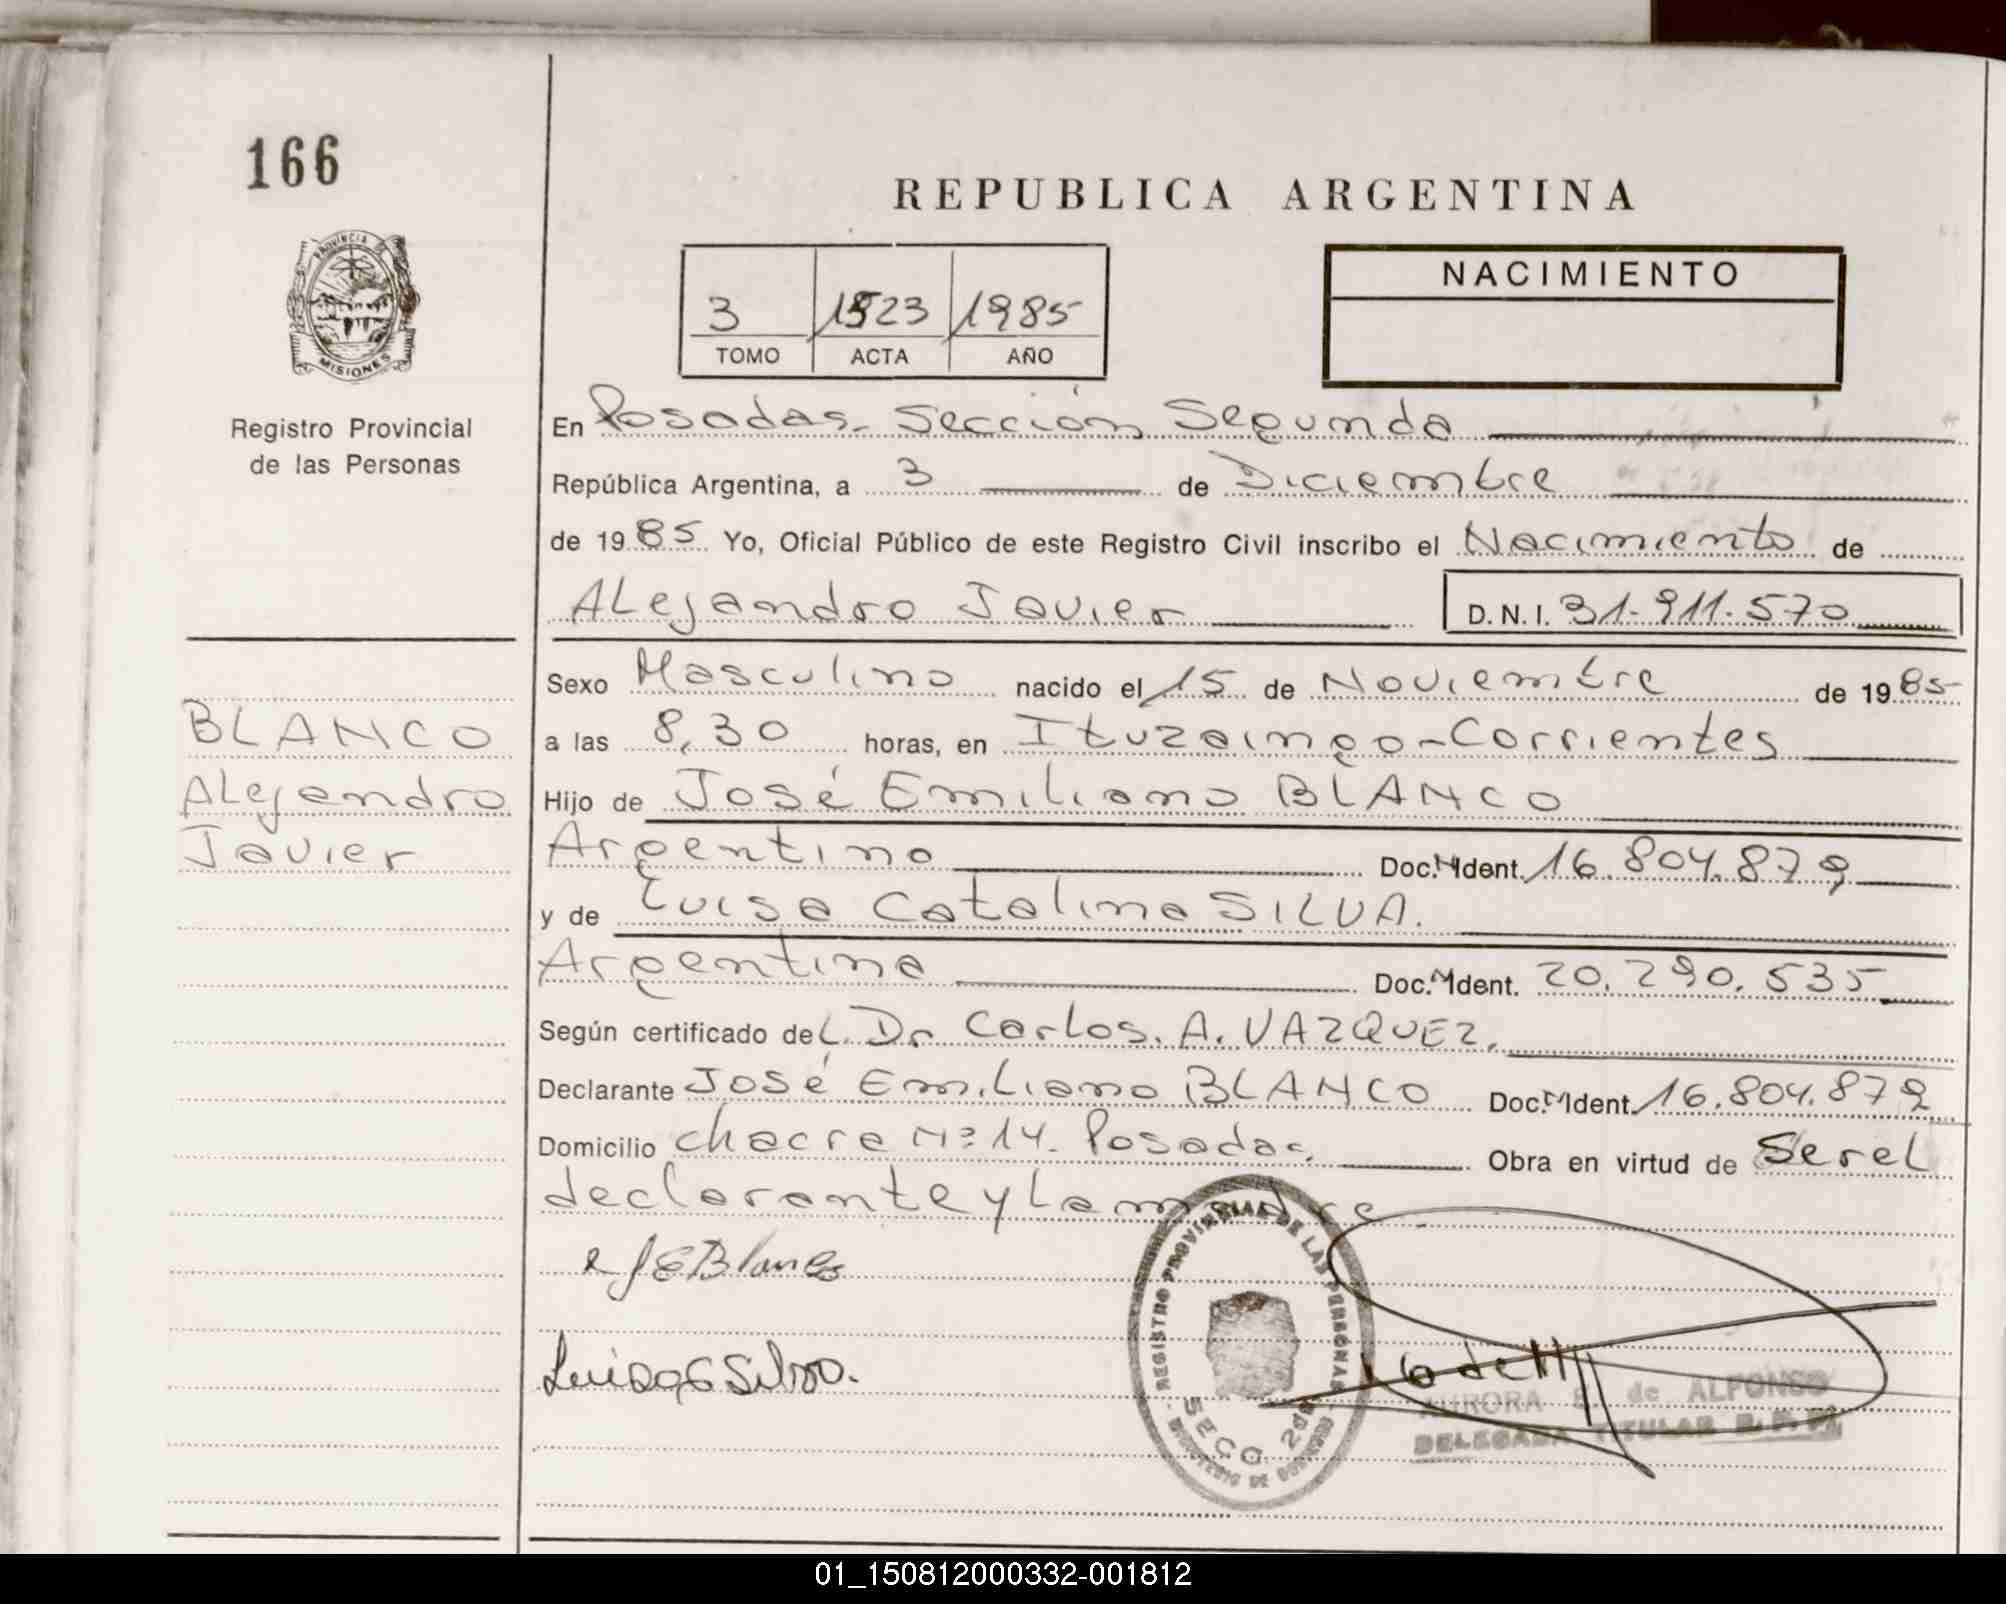 166
REPUBLICA ARGENTINA
PROVINCIA DE
MISIONES
Registro Provincial
de las Personas
3 1523 1985
TOMO ACTA AÑO
NACIMIENTO
En Posadas. Sección Segunda
República Argentina, a 3 de Diciembre
de 1985 Yo, Oficial Público de este Registro Civil inscribo el Nacimiento de
Alejandro Javier D.N.I. 31.911.570
Sexo Masculino nacido el 15 de Noviembre de 1985
a las 8,30 horas, en Ituzaingo-Corrientes
BLANCO
Alejandro
Javier
Hijo de José Emiliano BLANCO
Argentino Doc. N Ident. 16.804.879
y de Luisa Catalina SILVA.
Argentina Doc. N Ident. 20.290.535
Según certificado del Dr Carlos. A. VAZQUEZ.
Declarante José Emiliano BLANCO Doc. N Ident. 16.804.879
Domicilio chacra Nº 14. Posadas. Obra en virtud de Ser el
declarante y la madre
J E Blanco
Luisa C Silva.
REGISTRO PROVINCIAL DE LAS PERSONAS
SECC. 2da
MINISTERIO DE GOBIERNO
AURORA E. de ALFONSO
DELEGADA TITULAR R. P. P.
01_150812000332-001812